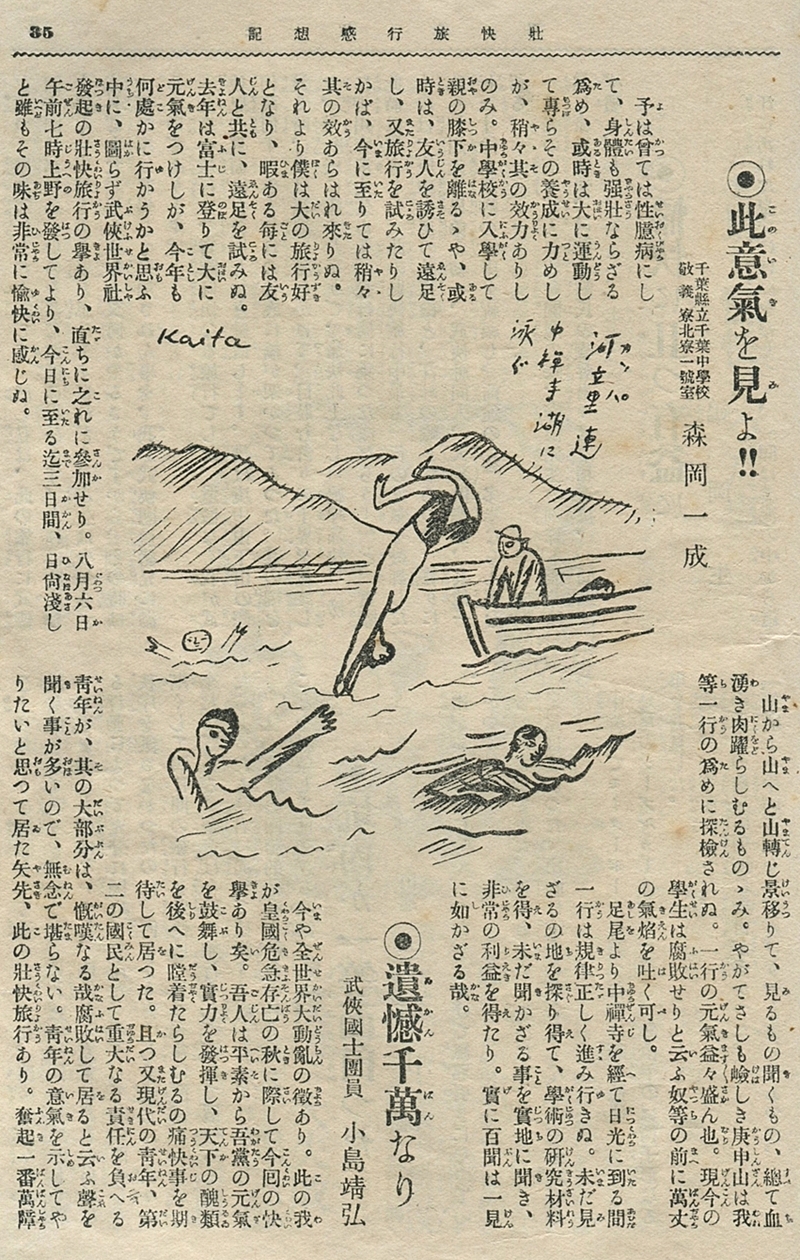 35
壯快旅行感想記
◉此意氣を見よ!!
千葉縣立千葉中學校
敬義寮北寮一號室
森岡一成
予は曾ては性臆病にし
て、身體も强壯ならざる
爲め、或時は大に運動し
て專らその養成に力めし
が、稍々其の效力ありし
のみ。中學校に入學して
親の膝下を離るゝや、或
時は、友人を誘ひて遠足
し、又旅行を試みたりし
かば、今に至りては稍々
其の效あらはれ來りぬ。
それより僕は大の旅行好
となり、暇ある每には友
人と共に、遠足を試みぬ。
去年は富士に登りて大に
元氣をつけしが、今年も
何處かに行かうかと思ふ
中に、圖らず武俠世界社
發起の壯快旅行の擧あり、直ちに之れに參加せり。八月六日
午前七時上野を發してより、今日に至る迄三日間、日尙淺し
と雖もその味は非常に愉快に感じぬ。
カッパ
河立里連
中禅寺湖に
泳ぐ
Kaita
山から山へと山轉じ景移りて、見るもの聞くもの、總て血
湧き肉躍らしむるものゝみ。やがてさしも嶮しき庚申山は我
等一行の爲めに探檢されぬ。一行の元氣益々盛ん也。現今の
學生は腐敗せりと云ふ奴等の前に萬丈
の氣焰を吐く可し。
足尾より中禪寺を經て日光に到る間
一行は規律正しく進み行きぬ。未だ見
ざるの地を探り得て、學術の硏究材料
を得、未だ聞かざる事を實地に聞き、
非常の利益を得たり。實に百聞は一見
に如かざる哉。
◉遺憾千萬なり
武俠國士團員　小島靖弘
今や全世界大動亂の徵あり。此の我
が皇國危急存亡の秋に際して今回の快
擧あり矣。吾人は平素から吾黨の元氣
を鼓舞し、實力を發揮し、天下の醜類
を後へに瞠着たらしむるの痛快事を期
待して居つた。且つ又現代の靑年、第
二の國民として重大なる責任を負へる
靑年が、其の大部分は、慨嘆なる哉腐敗して居ると云ふ聲を
聞く事が多いので、無念で堪らない。靑年の意氣を示してや
りたいと思つて居た矢先、此の壯快旅行あり。奮起一番萬障